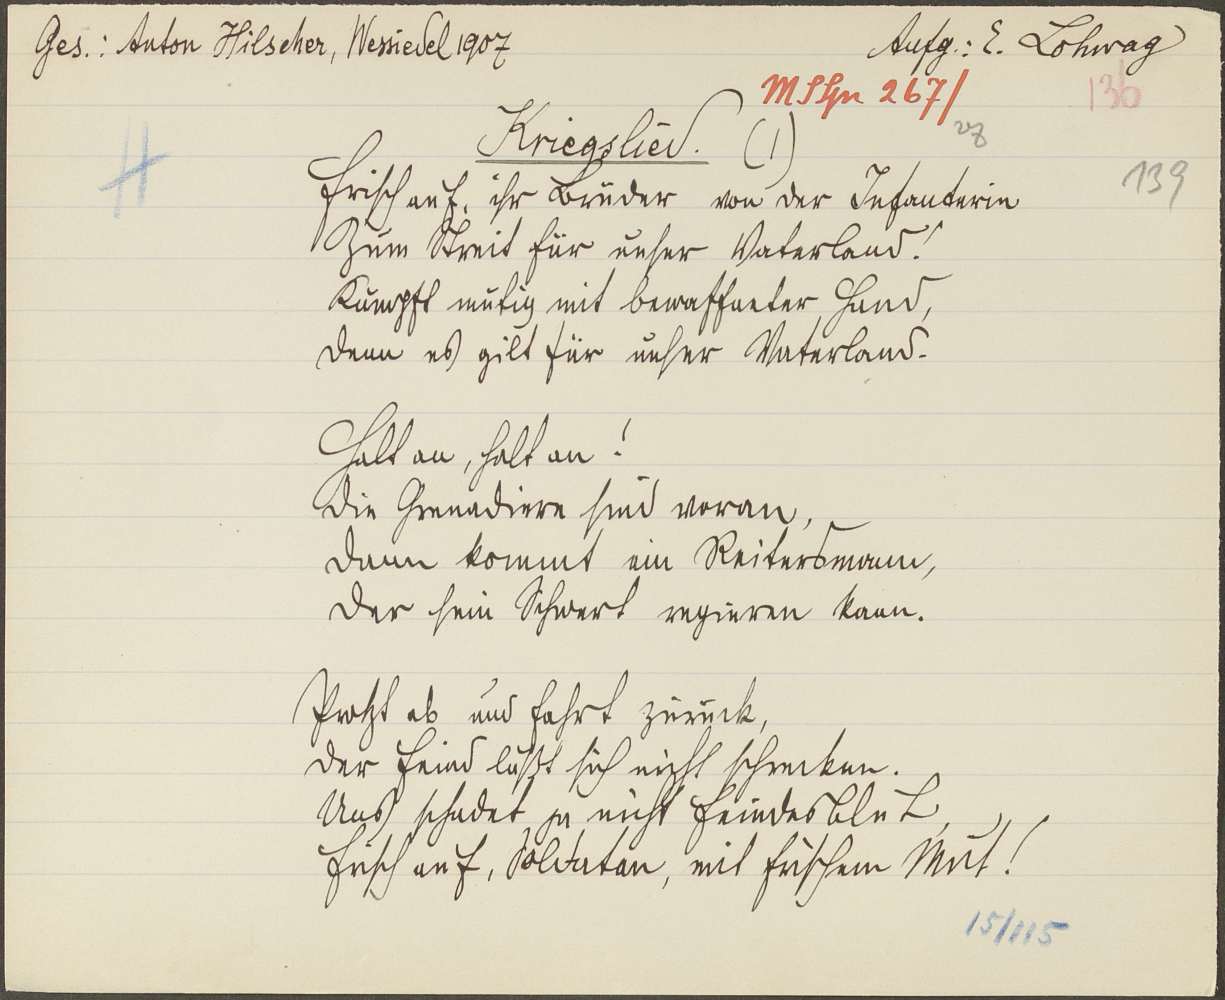 Ges.: Anton Hilscher, Wessiedel 1907
Aufg.: E. Lohwag
MSHn 267/
136
139
H
Kriegslied. (1)
Frisch auf, ihr Brüder von der Infanterie
Zum Streit für unser Vaterland!
Kämpft mutig mit bewaffneter Hand,
denn es gilt für unser Vaterland.
Halt an, halt an!
Die Grenadiere sind voran,
dann kommt ein Reitersmann,
der sein Schwert regieren kann.
Protzt ab und fahrt zurück,
der Feind läßt sich nicht schrecken.
Uns schadet ja nicht Feindesblut,
Frisch auf, Soldaten, mit frischem Mut!
15/115